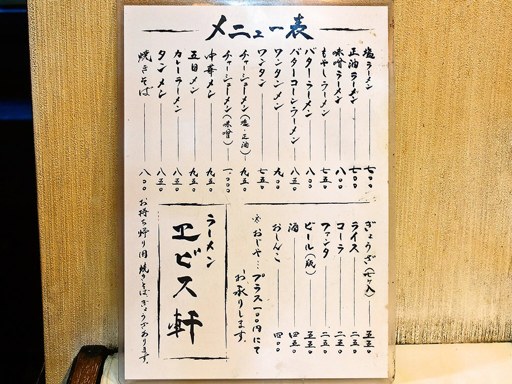 メニュー表
塩ラーメン 七〇〇
正油ラーメン 七〇〇
味噌ラーメン 八〇〇
もやしラーメン 七五〇
バターラーメン 八〇〇
バターコーンラーメン 八五〇
ワンタンメン 九〇〇
ワンタン 七五〇
チャーシューメン(塩・正油) 九五〇
チャーシューメン(味噌) 一〇〇〇
中華メン 九五〇
五目メン 九五〇
カレーラーメン 八五〇
タンメン 八五〇
焼きそば 八〇〇
ぎょうざ(七ヶ入) 五五〇
ライス 二五〇
コーラ 二五〇
ファンタ 二五〇
ビール(瓶) 五五〇
酒 四五〇
おしんこ 四〇〇
※おじや…プラス一〇〇円にて
お承りします。
ラーメン
ヱビス軒
お持ち帰り用焼きそば、ぎょうざあります。